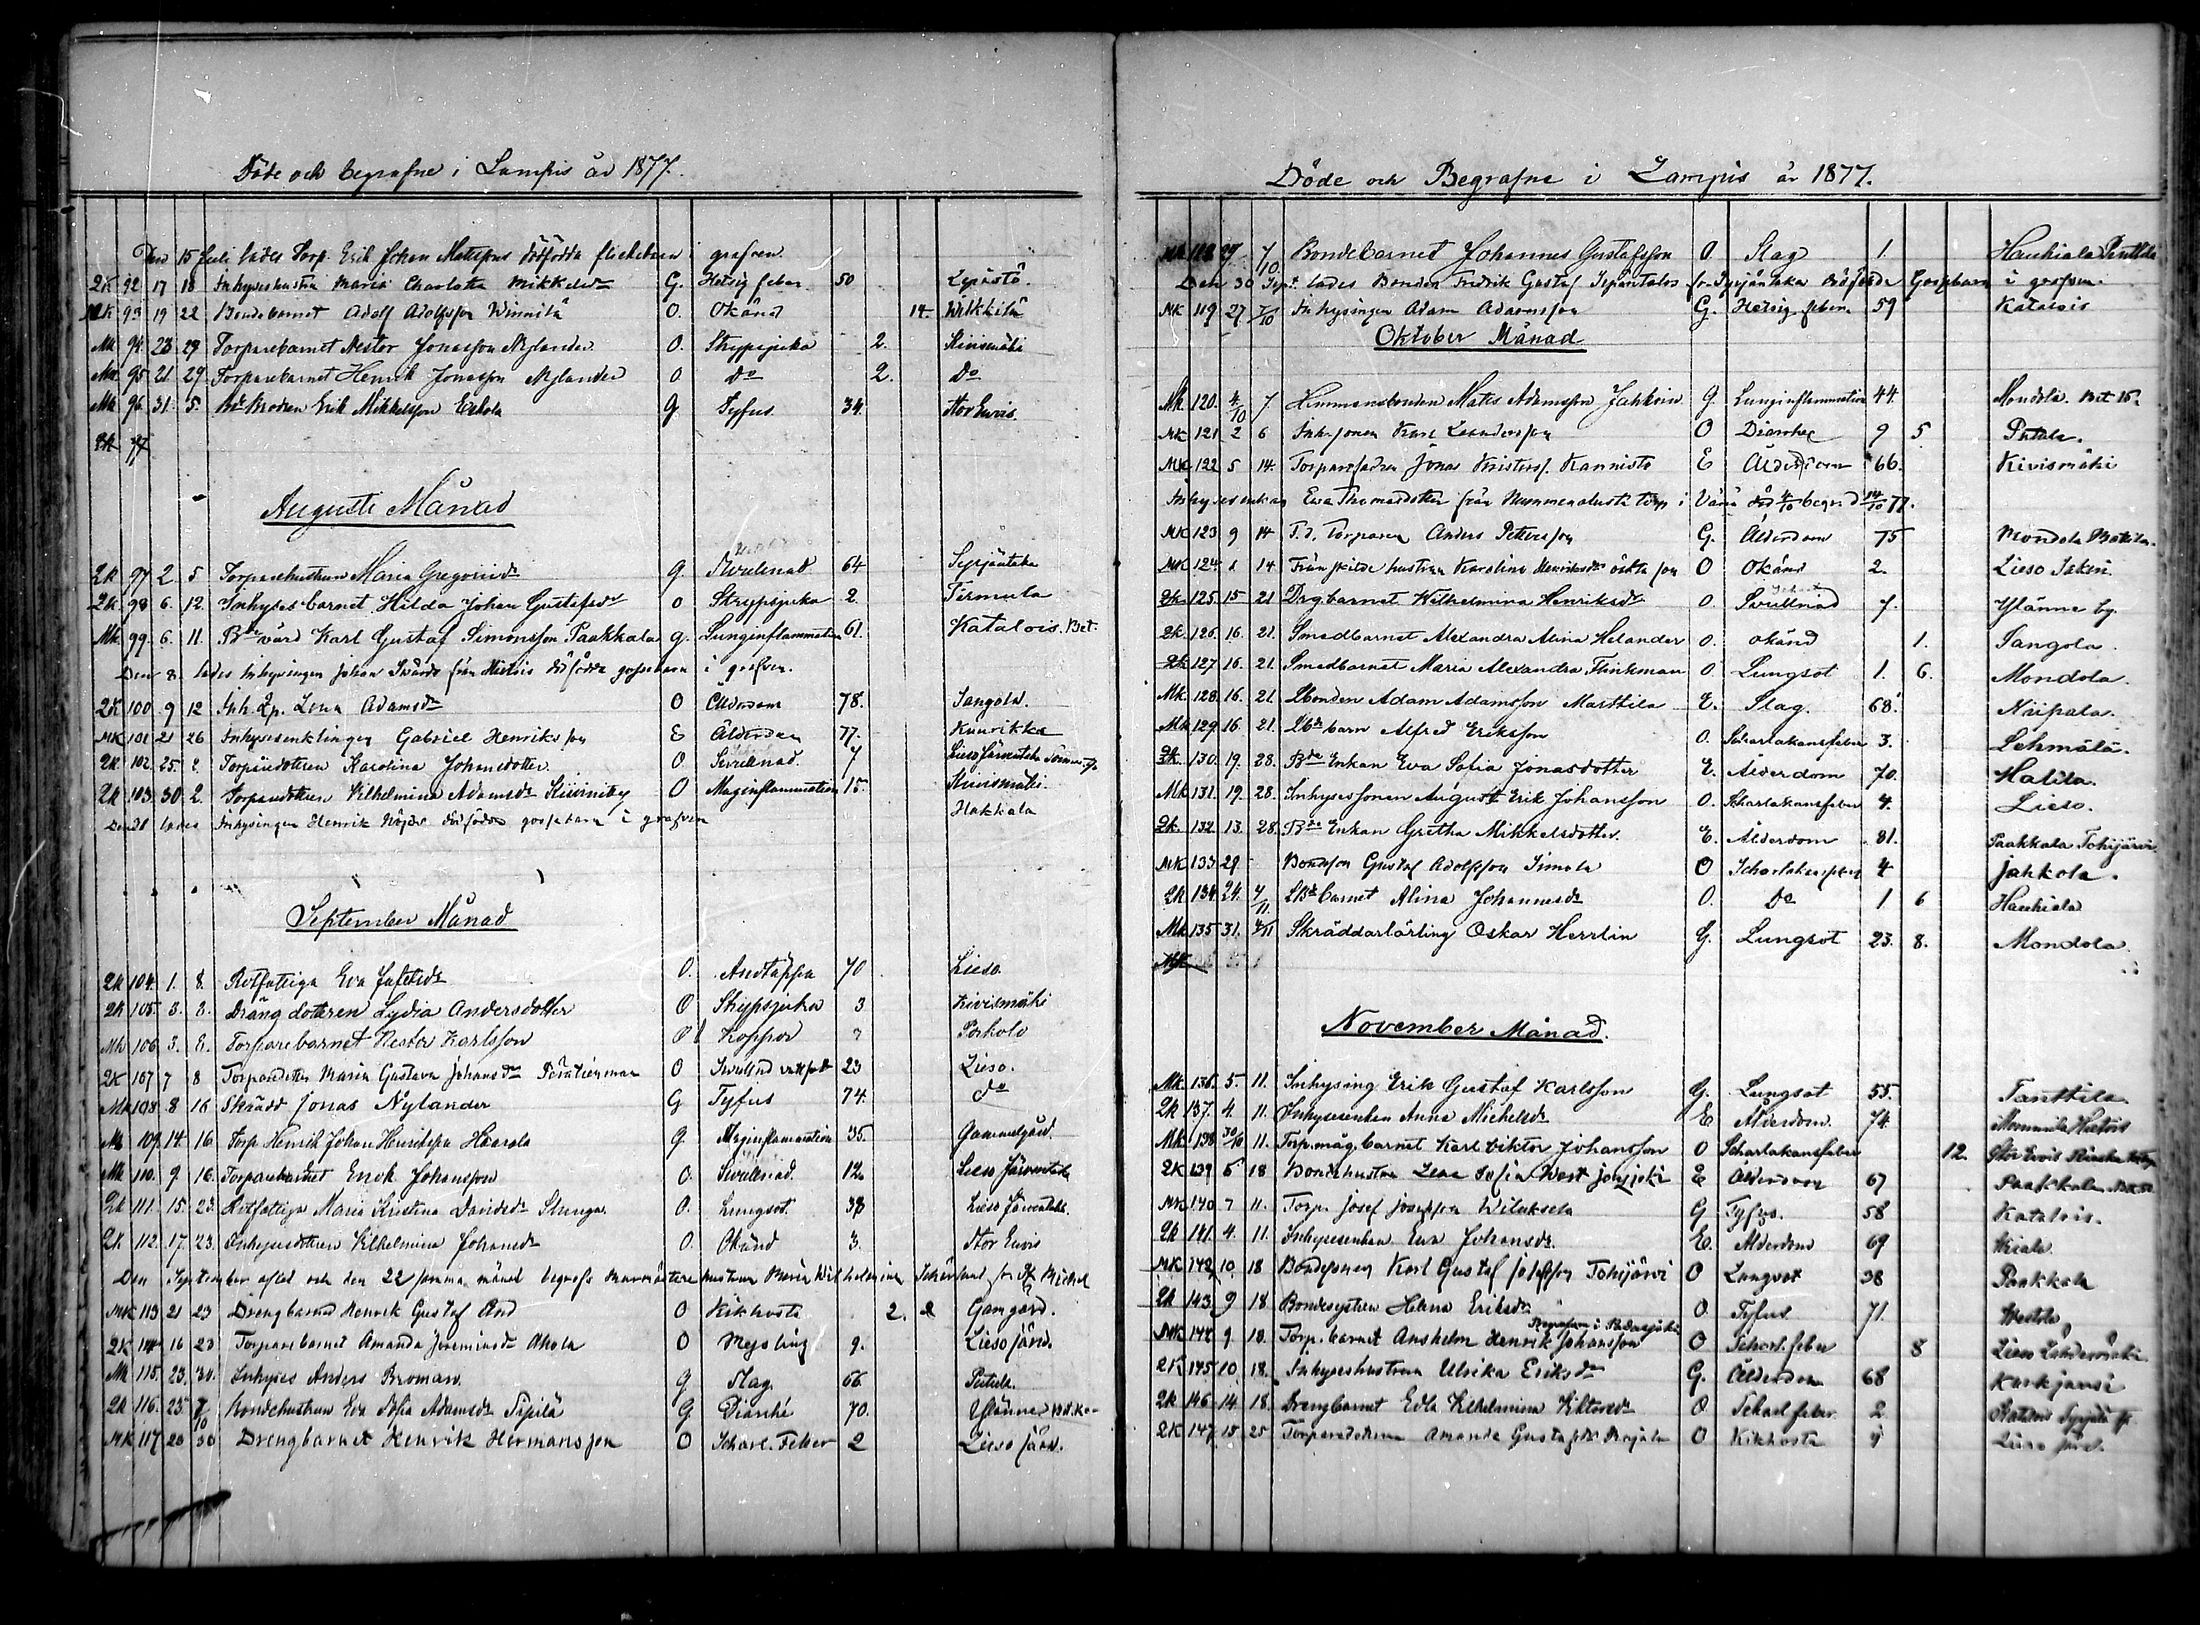 Döde och begrafne i Lampis år 1877.
Den 15 Juli lades Torp. Erik Johan Matssons dödfödda flickebarn i grafven
QK 92 17 18 Inhyseshustru Maria Charlotta Mikkelsdr G. Hetsig feber 50 Lepästö.
MK 93 19 22 Bondebarnet Adolf Adolfsson Winnilä O. Okänd 14. Wilkkilä
Mk 94 23 29 Torparebarnet Nestor Jonasson Nylander O. Strypsjuka 2. Kivismäki
Mk 95 21 29 Torparebarnet Henrik Jonasson Nylander O Do 2. Do
Mk 96 31. 5. Erik Mikkelsson Eskola G. Tyfus 34. Stor Evois
Augusti Månad
QK 97 2. 5 Torparehustrun Maria Gregoriidr G. Svullnad 64 Syrjäntaka
2K. 98 6. 12. Inhyses barnet Hilda Johan Gustafsdr O Strypsjuka 2. Tirmula
Mk 99 6. 11. Bdevärd Karl Gustaf Simonsson Paakkala G. Lunginflammation 61. Katalois. Bet.
Den 8. lades Inhysingen Johan dödfödda gossebarn i grafven.
2K 100 9 12 Inh. Qp. Lena Adamsdr O Ålderdom 78. Jangola.
MK 101 21 26 Inhysesenklingen Gabriel Henriksson E Ålderdom 77. Kuurikka
2K 102. 25. 2. Torparedottren Karolina Johansdotter O. Svullnad. 7 Lieso Järventaka
2K 103. 30 2. Torparedottren Vilhelmina Adamsdr O Maginflammation 15. Kivismäki
lades Inhysingen Henrik dödfödda gossebarn i grafven Hakkala
September Månad
2K 104. 1. 8. Rotfattiga Eva Jafetsdr O. Andtäppa 70 Lieso.
2K 105. 3. 8. Drängdottren Lydia Andersdotter O Strypsjuka 3 Kivismäki
Mk 106 3. 8. Torparebarnet Nestor Karlsson O Koppor Porkola
2K 107 7 8 Torparedotter Maria Gustava Johansdr O Svullnad 23 Lieso.
MK 108. 8 16 Skrädd Jonas Nylander G Tyfus 74. do
Mk 109. 14. 16. Torp Henrik Johan Henriksson Haarala G. Maginflammation 35. Gammelgård.
Mk 110. 9. 16. Torparebarnet Enok Johansson O. Svullnad. 12. Lieso Järventaka
2K 111. 15. 23. Rotfattiga Maria Kristina Davidsdr Stunga O. Lungsot. 38 Lieso Järventaka.
2K 112. 17. 23. Inhysesdottren Vilhelmina Johansdr O. Okänd 3. Stor Evois
Den September afled och den 22 samma månad begrofs hustrun Maria Wilhelmina
MK 113 21 23 Drengbarnet Henrik Gustaf And O Kikhosta 2. Gamgård.
2K 114 16 23 Torparebarnet Amanda Jeremiasdr Ahola O Messling 9. Lieso Järv.
Mk 115. 23. 30. Inhyses Anders Broman. G Slag 66 Putula.
2K 116. 25 7/10 Bondehustrun Eva Sofia Adamsdr Sipilä G Diarrhé 70.
MK 117 20 30 Drengbarnet Henrik Hermansson O Scharl. Feber 2 Lieso Järv.
Döde och Begrafne i Lampis år 1877.
MK 118 27 7/10 Bondebarnet Johannes Gustafsson O Slag 1. Hauhiala Penttilä
Den 30 Sept. lades Bonden Fredrik Gustaf fr. Syrjäntaka dödfödda Gossebarn i grafven.
MK 119 27 7/10 Inhysingen Adam Adamsson G. Hetsig feber 59 Katalois
Oktober Månad
Mk 120. 4/10 7. Hemmansbonden Mats Adamsson Jahkola G. Lunginflammation 44. Mondola.
MK 121 2 6 Inh. sonen Karl Leandersson O Diarrhé 9 5 Putula.
MK 122 5 14. Torparefadren Jonas Kristerss. Kannisto E Ålderdom 66. Kivismäki
Inhysesenkan Eva Thomasdotter från torp i begr. d 14/10 77.
MK 123 9 14 F.d. Torparen Anders Pettersson G. Ålderdom 75 Mondola
MK 124. 1 14 Frånskilde hustrun Karolina Henriksdr oäkta son O Okänd 2. Lieso
2K. 125. 15 21 Drgbarnet Wilhelmina Henriksdr O. Svullnad 7. Ylänne by.
2K. 126. 16. 21. Smedbarnet Alexandra Alina Helander O. okänd 1. Jangola.
2K 127 16. 21. Smedbarnet Maria Alexandra Flinkman O. Lungsot 1. 6. Mondola.
Mk 128. 16. 21. Bonden Adam Adamsson Marttila E. Slag. 68. Kiipala.
Mk 129. 16. 21. Bde barn Alfred Eriksson O. Scharlakansfeber 3. Lehmälä.
2K. 130. 19. 28. Bde Enkan Eva Sofia Jonasdotter E. Ålderdom 70. Hatila.
Mk 131. 19. 28. Inhysessonen August Erik Johansson O. Scharlakansfeber 4. Lieso.
2K 132 13. 28. Bde Enkan Gretha Mikkelsdotter. E. Ålderdom 81. Paakkala Tohijärvi
MK 133 29 Bondson Gustaf Adolfsson Simola O Scharlakansfeber 4 Jahkola.
2K 134. 24. 4/11. Bdebarnet Alina Johannesdr O. Do 1 6 Hauhiala
Mk 135 31. 4/11 Skräddarlärling Oskar Herrlin G. Lungsot 23. 8. Mondola.
November Månad.
Mk. 136. 5. 11. Inhysing Erik Gustaf Karlsson G. Lungsot 55. Tanttila
2K 137. 4. 11. Inhysesenkan Anna Michelsdr E Ålderdom. 74.
Mk 138 30/10 11. Torp.måg. barnet Karl Viktor Johansson O Scharlakansfeber 12.
2K 139 5 18 Bondehustru Lena Sofia E Ålderdom 67 Paakkala
MK 140 7 11. Torp. Josef Josefsson Wiluksela G Tyfus. 58 Katalois.
2K 141 4. 11. Inhysesenkan Eva Johansdr. E. Ålderdom 69
MK 142 10 18 Bondesonen Karl Gustaf Josefsson Tohijärvi O Lungsot 38 Paakkala
2K 143 9 18 Bondesystern Helena Eriksdr O Tyfus 71.
MK 144 9 18. Torp. barnet Anshelm Henrik Johansson O Scharl. feber 8 Lieso
2K 145 10 18. Inhyseshustrun Ulrika Eriksdr G. Ålderdom 68
2K 146 14 18. Drengbarnet Edla Vilhelmina Viktorsdr O Scharl. feber 2
2K 147 15 25 Torparedottren Amanda Gustafsdr O Kikhosta Lieso Järv.